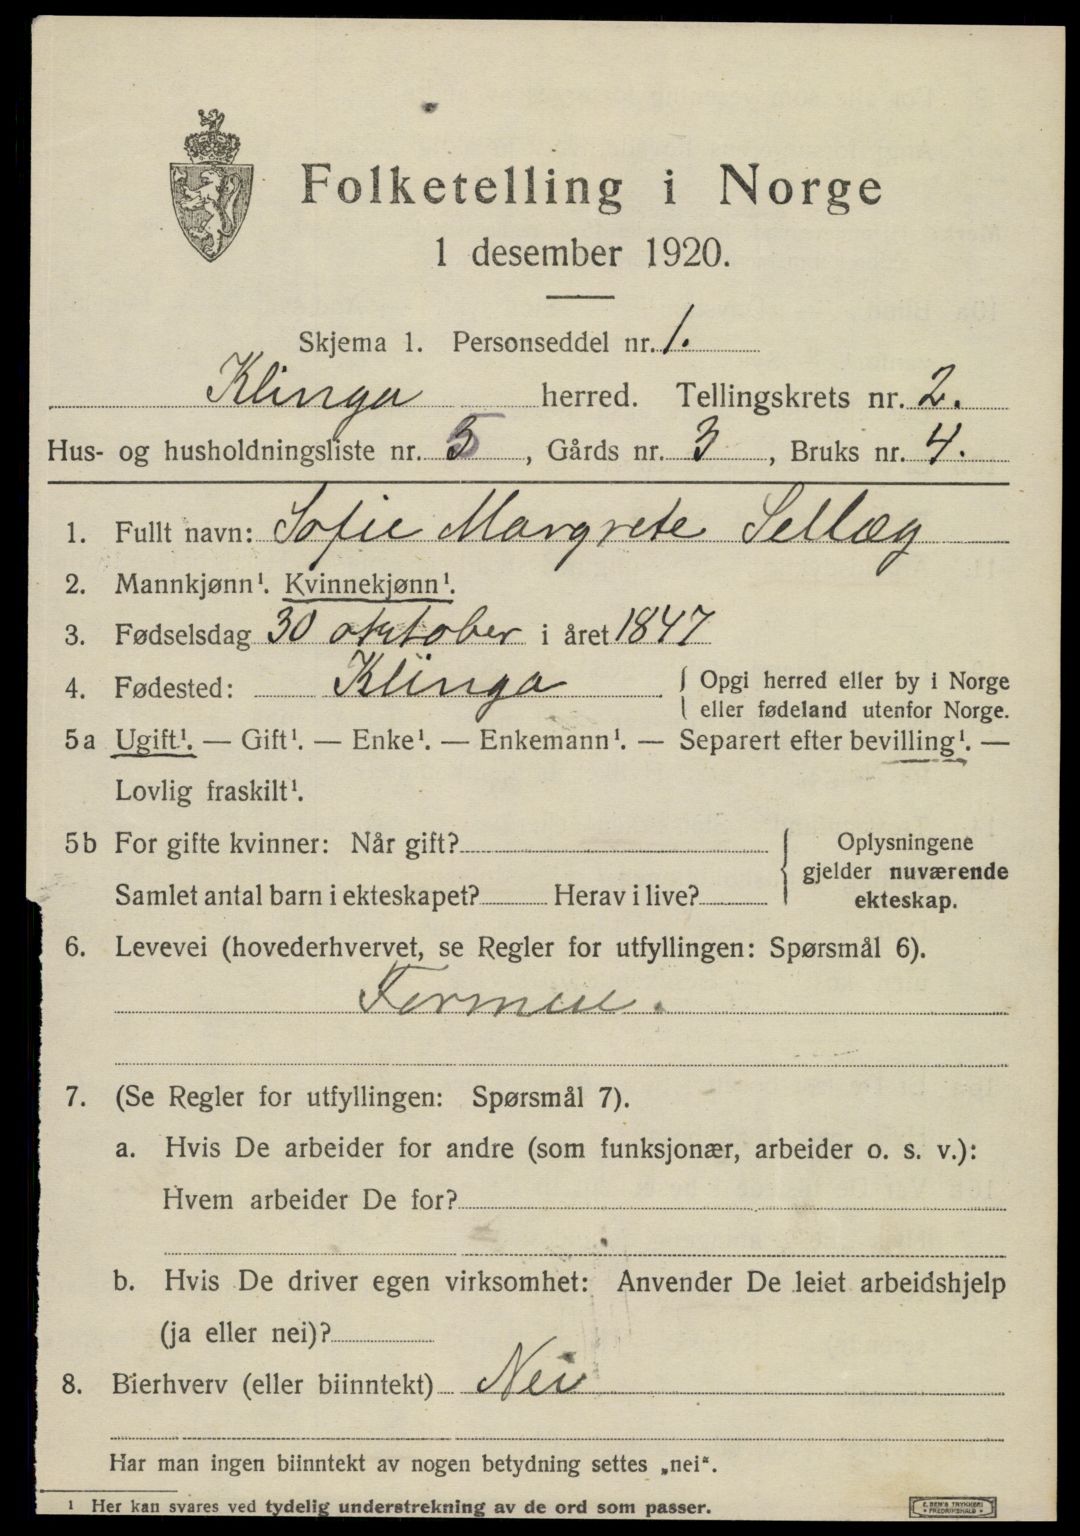 Folketelling i Norge
1 desember 1920.
Skjema 1. Personseddel nr. 1.
Klinga herred. Tellingskrets nr. 2.
Hus- og husholdningsliste nr. 5, Gårds nr. 3, Bruks nr. 4.
1. Fullt navn: Sofie Margrete Sellæg
2. Mannkjønn¹. Kvinnekjønn¹.
3. Fødselsdag 30 oktober i året 1847
4. Fødested: Klinga { Opgi herred eller by i Norge
eller fødeland utenfor Norge.
5a Ugift¹. — Gift¹. — Enke¹. — Enkemann¹. — Separert efter bevilling¹. —
Lovlig fraskilt¹.
5b For gifte kvinner: Når gift?
Samlet antal barn i ekteskapet? Herav i live?
Oplysningene
gjelder nuværende
ekteskap.
6. Levevei (hovederhvervet, se Regler for utfyllingen: Spørsmål 6).
Formue.
7. (Se Regler for utfyllingen: Spørsmål 7).
a. Hvis De arbeider for andre (som funksjonær, arbeider o. s. v.):
Hvem arbeider De for?
b. Hvis De driver egen virksomhet: Anvender De leiet arbeidshjelp
(ja eller nei)?
8. Bierhverv (eller biinntekt) Nei
Har man ingen biinntekt av nogen betydning settes „nei“.
¹ Her kan svares ved tydelig understrekning av de ord som passer.
FREDRIKSHALD